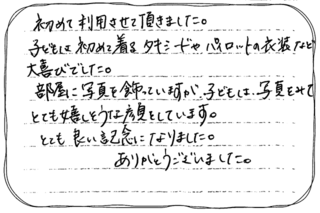 初めて利用させて頂きました。
子どもは初めて着るタキシードやパイロットの衣装など
大喜びでした。
部屋に写真を飾っていますが、子どもは、写真をみて
とても嬉しそうな顔をしています。
とても良い記念になりました。
ありがとうございました。